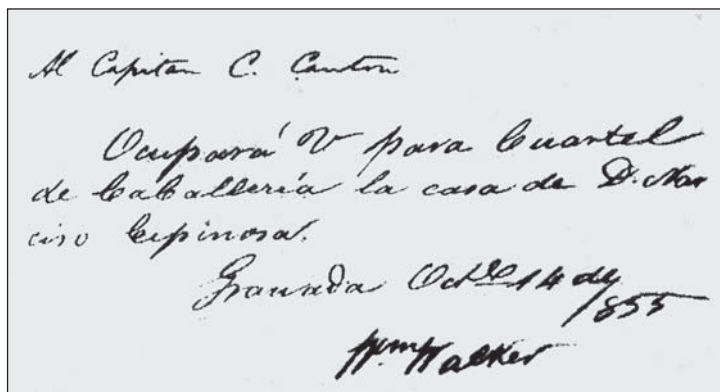 Al Capitan C. Canton
Ocupará V para Cuartel
de Caballería la casa de D. Nar
ciso Espinosa.
Granada Octe 14 de
1855
Wm Walker